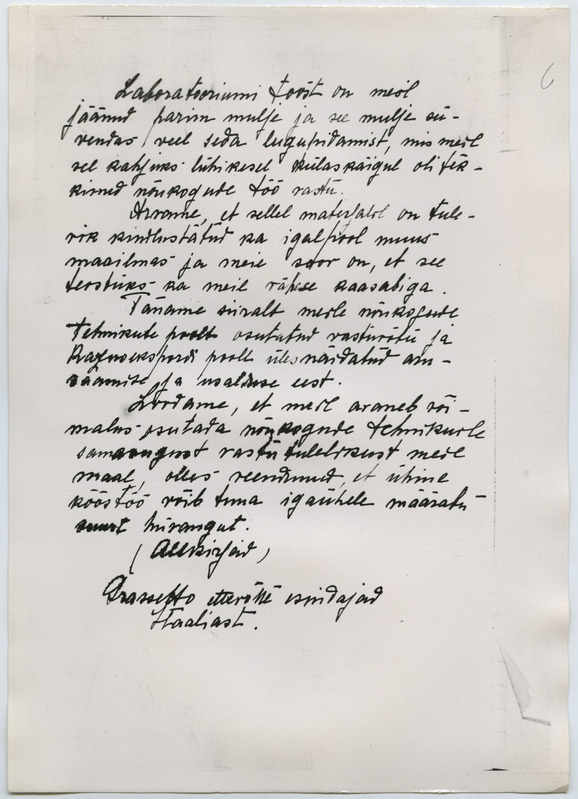 6
Laboratooriumi tööst on meil
jäänud parim mulje ja see mulje sü-
vendas veel seda lugupidamist, mis meil
sel kahjuks lühikesel külaskäigul oli tek-
kinud nõukogude töö vastu.
Arvame, et sellel materjalil on tule-
vik kindlustatud ka igalpool muus
maailmas ja meie soov on, et see
teostuks ka meil rahva kaasabiga.
Täname siiralt meile nõukogude
tehnikute poolt osutatud vastuvõtu ja
poolt ülesnäidatud aru-
saamise ja usalduse eest.
Loodame, et meil avaneb või-
malus osutada nõukogude tehnikuile
samasugust vastutulelikust meie
maal, olles veendunud, et ühine
koostöö võib tuua igaühele määratu
suurt hüvangut.
(Allkirjad)
Grassetto ettevõtte esindajad
Itaaliast.